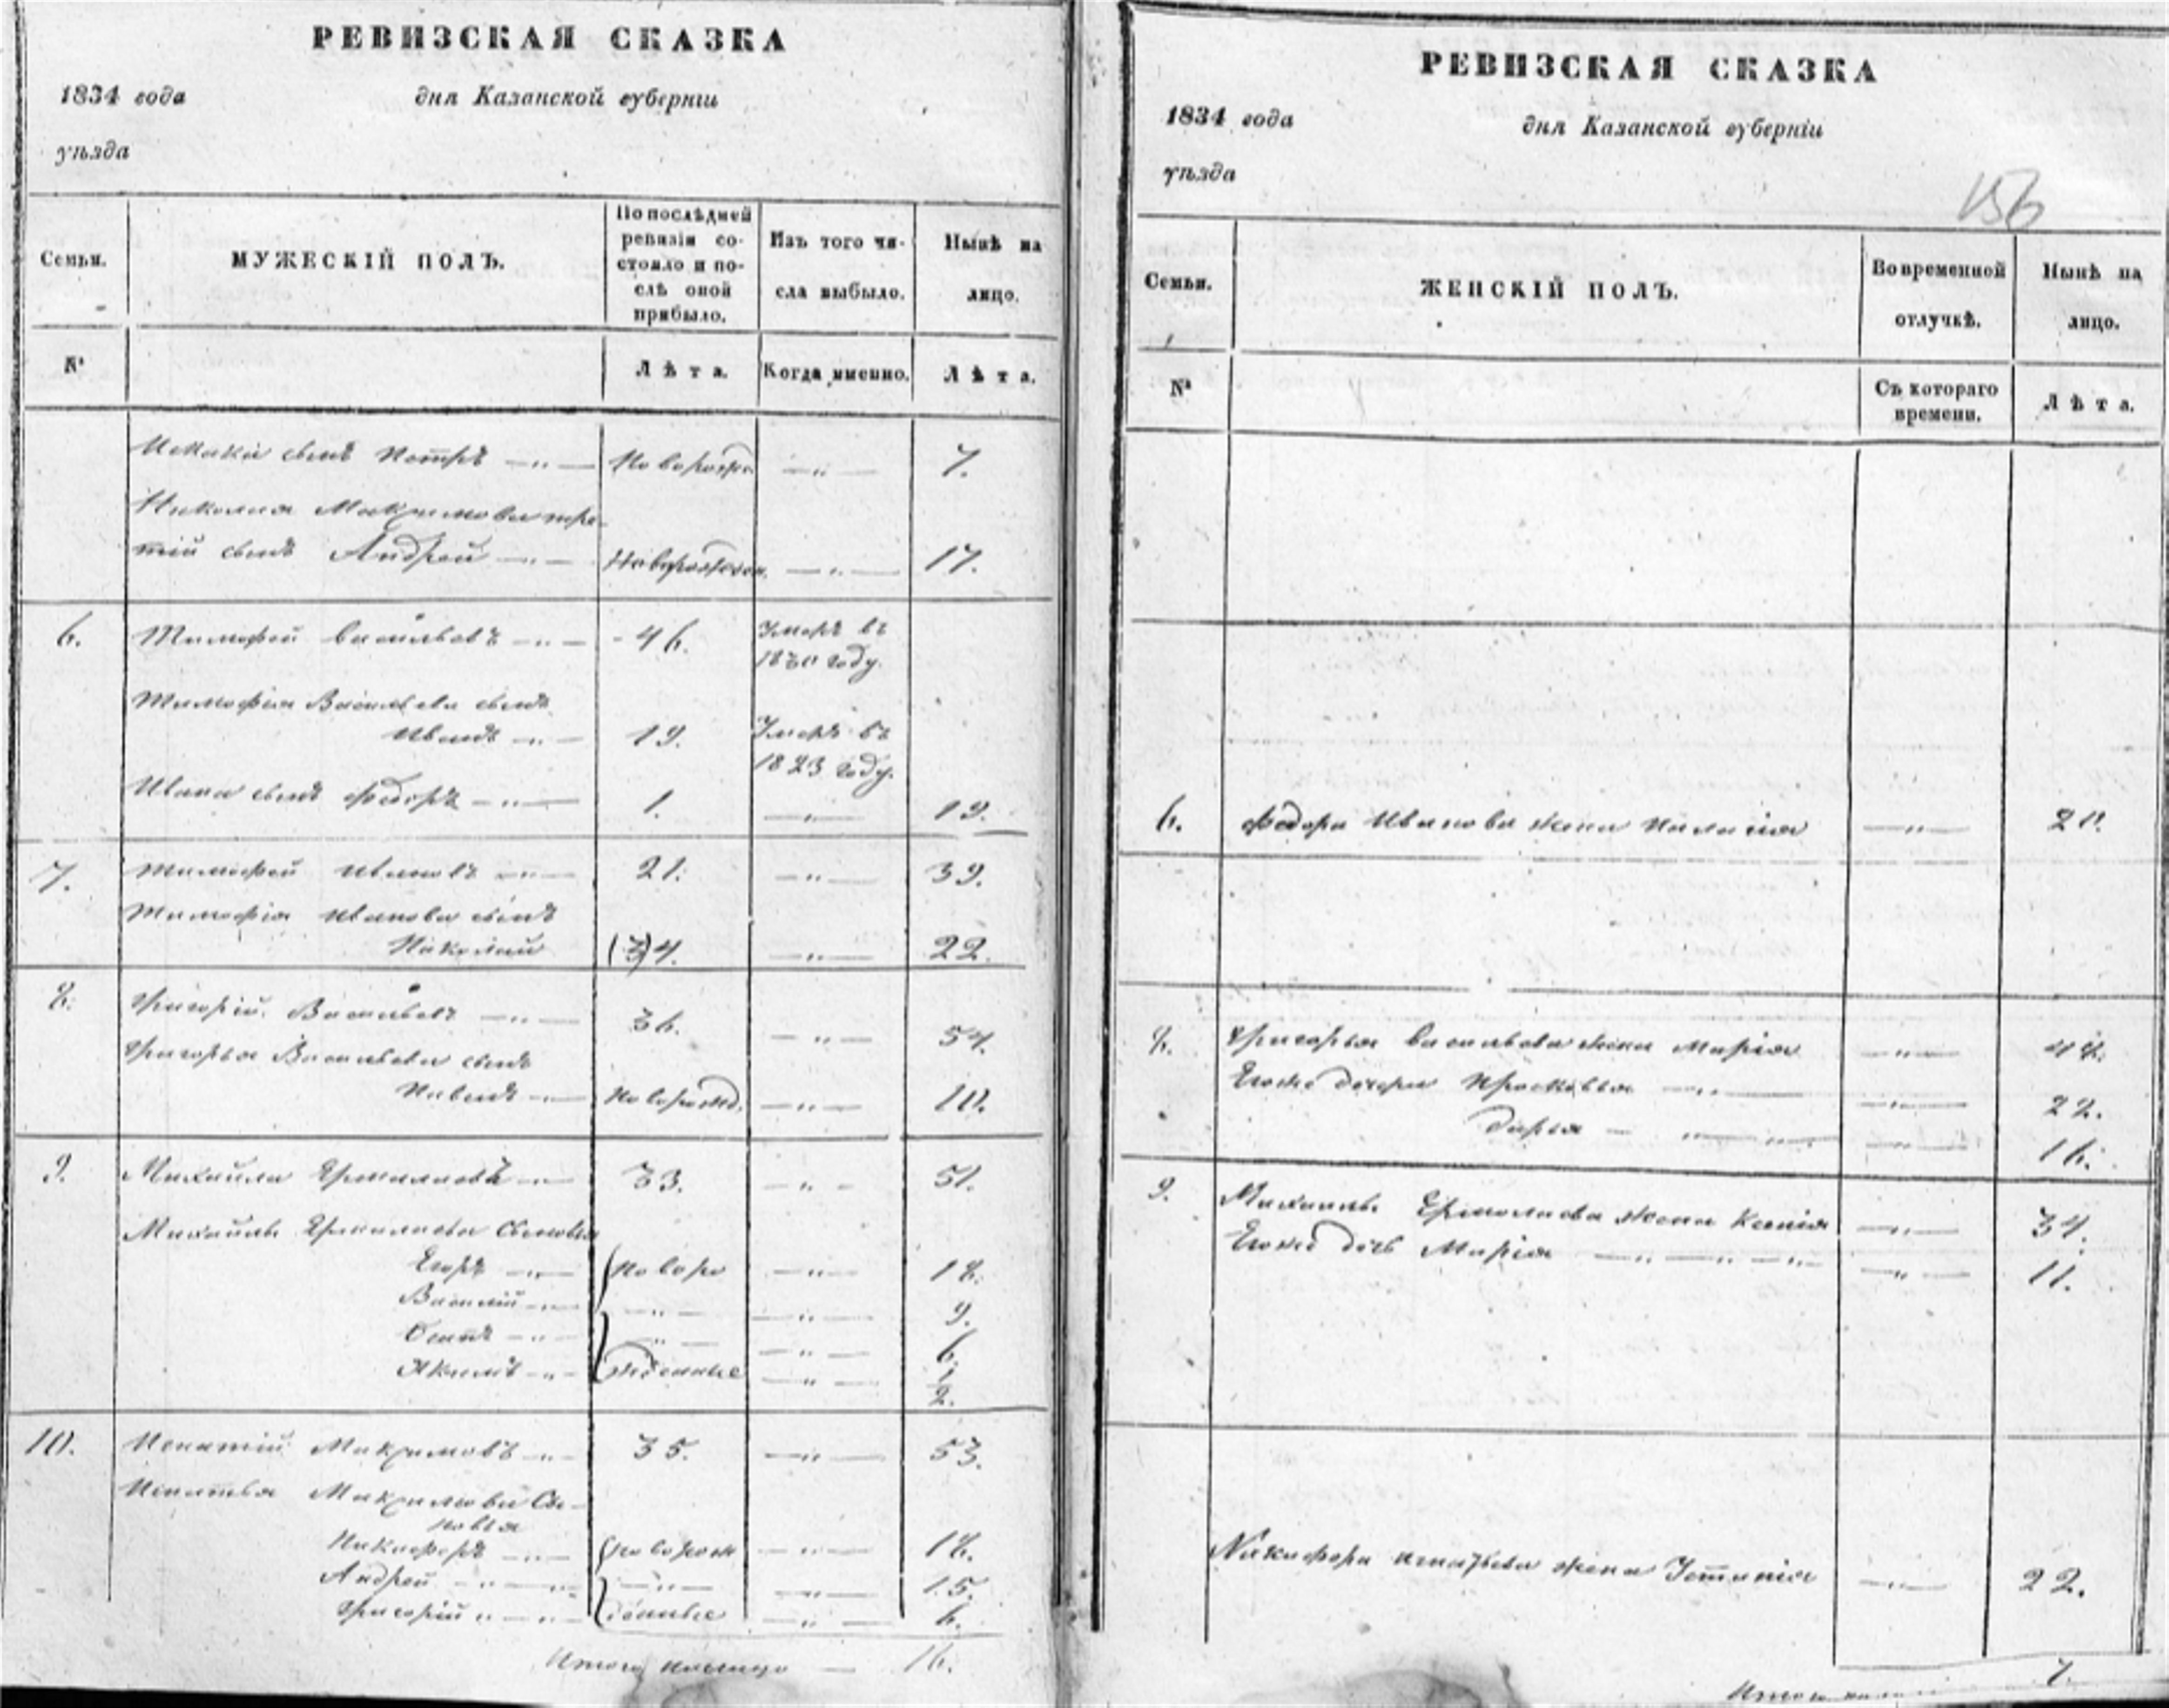 РЕВИЗСКАЯ СКАЗКА
1834 года дня Казанской губернiи
уѣзда
Семьи. МУЖЕСКIЙ ПОЛЪ. По послѣдней ревизiи состояло и послѣ оной прибыло. Изъ того числа выбыло. Нынѣ на лицо.
№ Лѣта. Когда именно. Лѣта.
сынъ Петръ —„— Новорожд. —„— 7.
Николая Макримова тре-
тiй сынъ Андрей —„— Новорожден. —„— 17.
6. Тимофей Васильевъ —„— 46. Умеръ въ
1830 году.
Тимофея Васильева сынъ
Иванъ —„— 19. Умеръ въ
1823 году.
Ивана сынъ Федоръ —„— 1. —„— 19.
7. Тимофей Ивановъ —„— 21. —„— 39.
Тимофея Иванова сынъ
Николай (3)4. —„— 22.
8. Григорiй Васильевъ —„— 36. —„— 54.
Григорья Васильева сынъ
Павелъ —„— Новорожд. —„— 10.
9. Михайла Ермолаевъ —„— 33. —„— 51.
Михайлы Ермолаева сыновья
Егоръ —„— новоро —„— 18.
Василiй —„— —„— —„— 9.
Осипъ —„— —„— —„— 6.
Якимъ —„— жденные —„— ½.
10. Игнатiй Макримовъ —„— 35. —„— 53.
Игнатья Макримова Сы-
новья
Никифоръ —„— новорож —„— 18.
Андрей —„— —„— —„— 15.
Григорiй —„— денные —„— 6.
Итого налицо — 16.
РЕВИЗСКАЯ СКАЗКА
1834 года дня Казанской губернiи
уѣзда
156
Семьи. ЖЕНСКIЙ ПОЛЪ. Во временной отлучкѣ. Нынѣ на лицо.
№ Съ котораго времени. Лѣта.
6. Федора Иванова жена Палагiя —„— 20.
8. Григорья Васильева жена Марiя —„— 48.
Егоже дочери Прасковья —„— —„— 22.
Дарья —„— —„— 16.
9. Михаилы Ермолаева жена Ксенiя —„— 34.
Егоже дочь Марiя —„— —„— 11.
Никифора Игнатьева жена Устинiя —„— 22.
Итого 7.